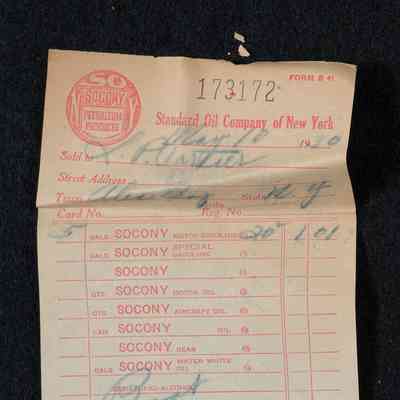 FORM B 41
173172
SO
SOCONY
PETROLEUM
PRODUCTS
Standard Oil Company of New York
May 19
Sold to
Street Address
Town State N. Y
Card No. Reg. No.
5 GALS SOCONY MOTOR GASOLINE 20 1 01
GALS SOCONY SPECIAL GASOLINE @
SOCONY @
QTS SOCONY MOTOR OIL @
QTS SOCONY AIRCRAFT OIL @
CAN SOCONY OIL @
SOCONY GEAR @
GALS SOCONY WATER WHITE OIL @